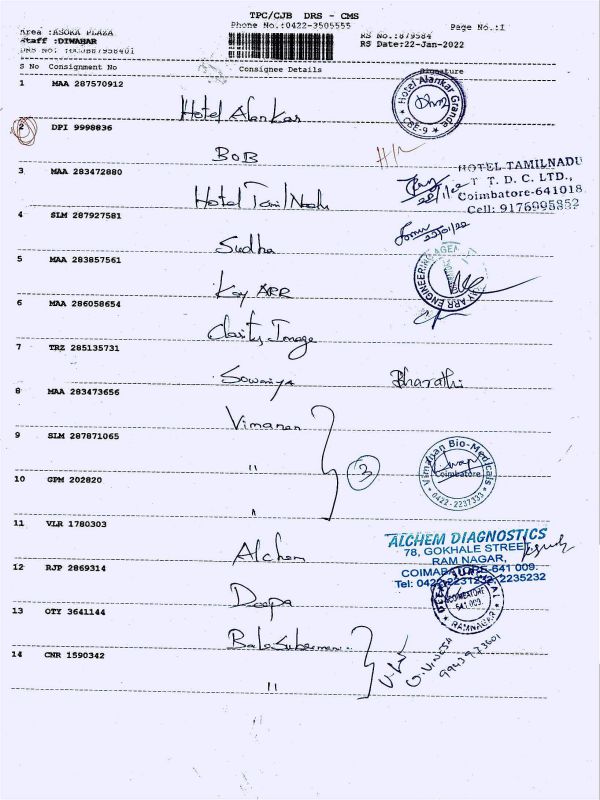 TPC/CJB DRS - CMS
Phone No.:0422-3505555
Page No.:1
Area :ASOKA PLAZA
RS No.:879584
Staff :DIWAHAR
RS Date:22-Jan-2022
S No Consignment No Consignee Details Signature
1 MAA 287570912
Hotel Alankar
Hotel Alankar Grande
CBE-9
2 DPI 9998836
BOB
3 MAA 283472880
HOTEL TAMILNADU
T. T. D. C. LTD.,
Coimbatore-641018
Cell: 9176995852
Hotel Tamil Nadu
22/1/22
4 SLM 287927581
22/01/22
Sudha
5 MAA 283857561
KAY ARR ENGINEERING AGEN
Kay ARR
6 MAA 286058654
Clarity Image
7 TRZ 285135731
Bharathi
8 MAA 283473656
Vimanan
9 SLM 287871065
"
3
Vimanan Bio-Medicals
Coimbatore
0422-2237333
10 GPM 202820
"
11 VLR 1780303
ALCHEM DIAGNOSTICS
78, GOKHALE STREET,
RAM NAGAR,
COIMBATORE-641 009.
Tel: 0422-2231232, 2235232
Alchem
12 RJP 2869314
Deepa
COIMBATORE
641 009.
RAMNAGAR
13 OTY 3641144
Balasubramani
14 CNR 1590342
"